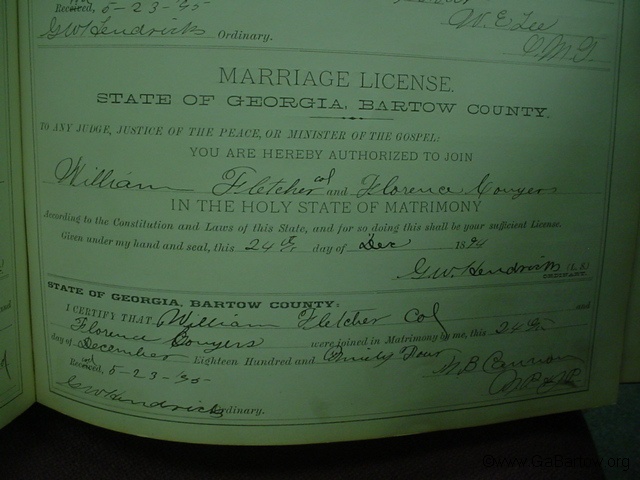 Received, 5-23-95-
W. E. Lee
G W Hendricks Ordinary.
MARRIAGE LICENSE.
STATE OF GEORGIA, BARTOW COUNTY.
TO ANY JUDGE, JUSTICE OF THE PEACE, OR MINISTER OF THE GOSPEL:
YOU ARE HEREBY AUTHORIZED TO JOIN
William Fletcher col and Florence Conyers
IN THE HOLY STATE OF MATRIMONY
According to the Constitution and Laws of this State, and for so doing this shall be your sufficient License.
Given under my hand and seal, this 24th day of Dec 1894
G W Hendricks (L. S.)
ORDINARY.
STATE OF GEORGIA, BARTOW COUNTY:
I CERTIFY THAT William Fletcher Col and
Florence Conyers were joined in Matrimony by me, this 24th
day of December Eighteen Hundred and Ninety Four
Received, 5-23-95- W B Cannon
G W Hendricks Ordinary.
©www.GaBartow.org